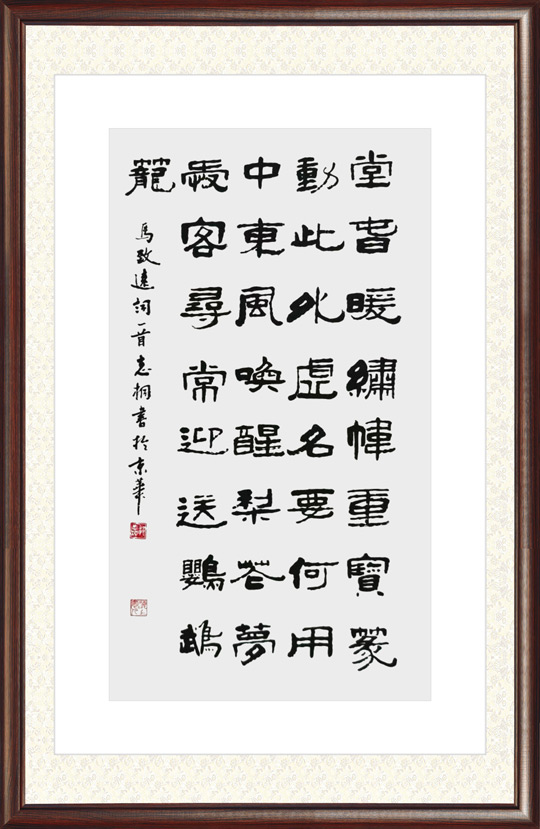 堂旾暖繡幃重寶篆
動此外虛名要何用
中東風喚醒梨花夢
愛客尋常迎送鸚鵡
籠
馬致遠詞一首桐書於京華